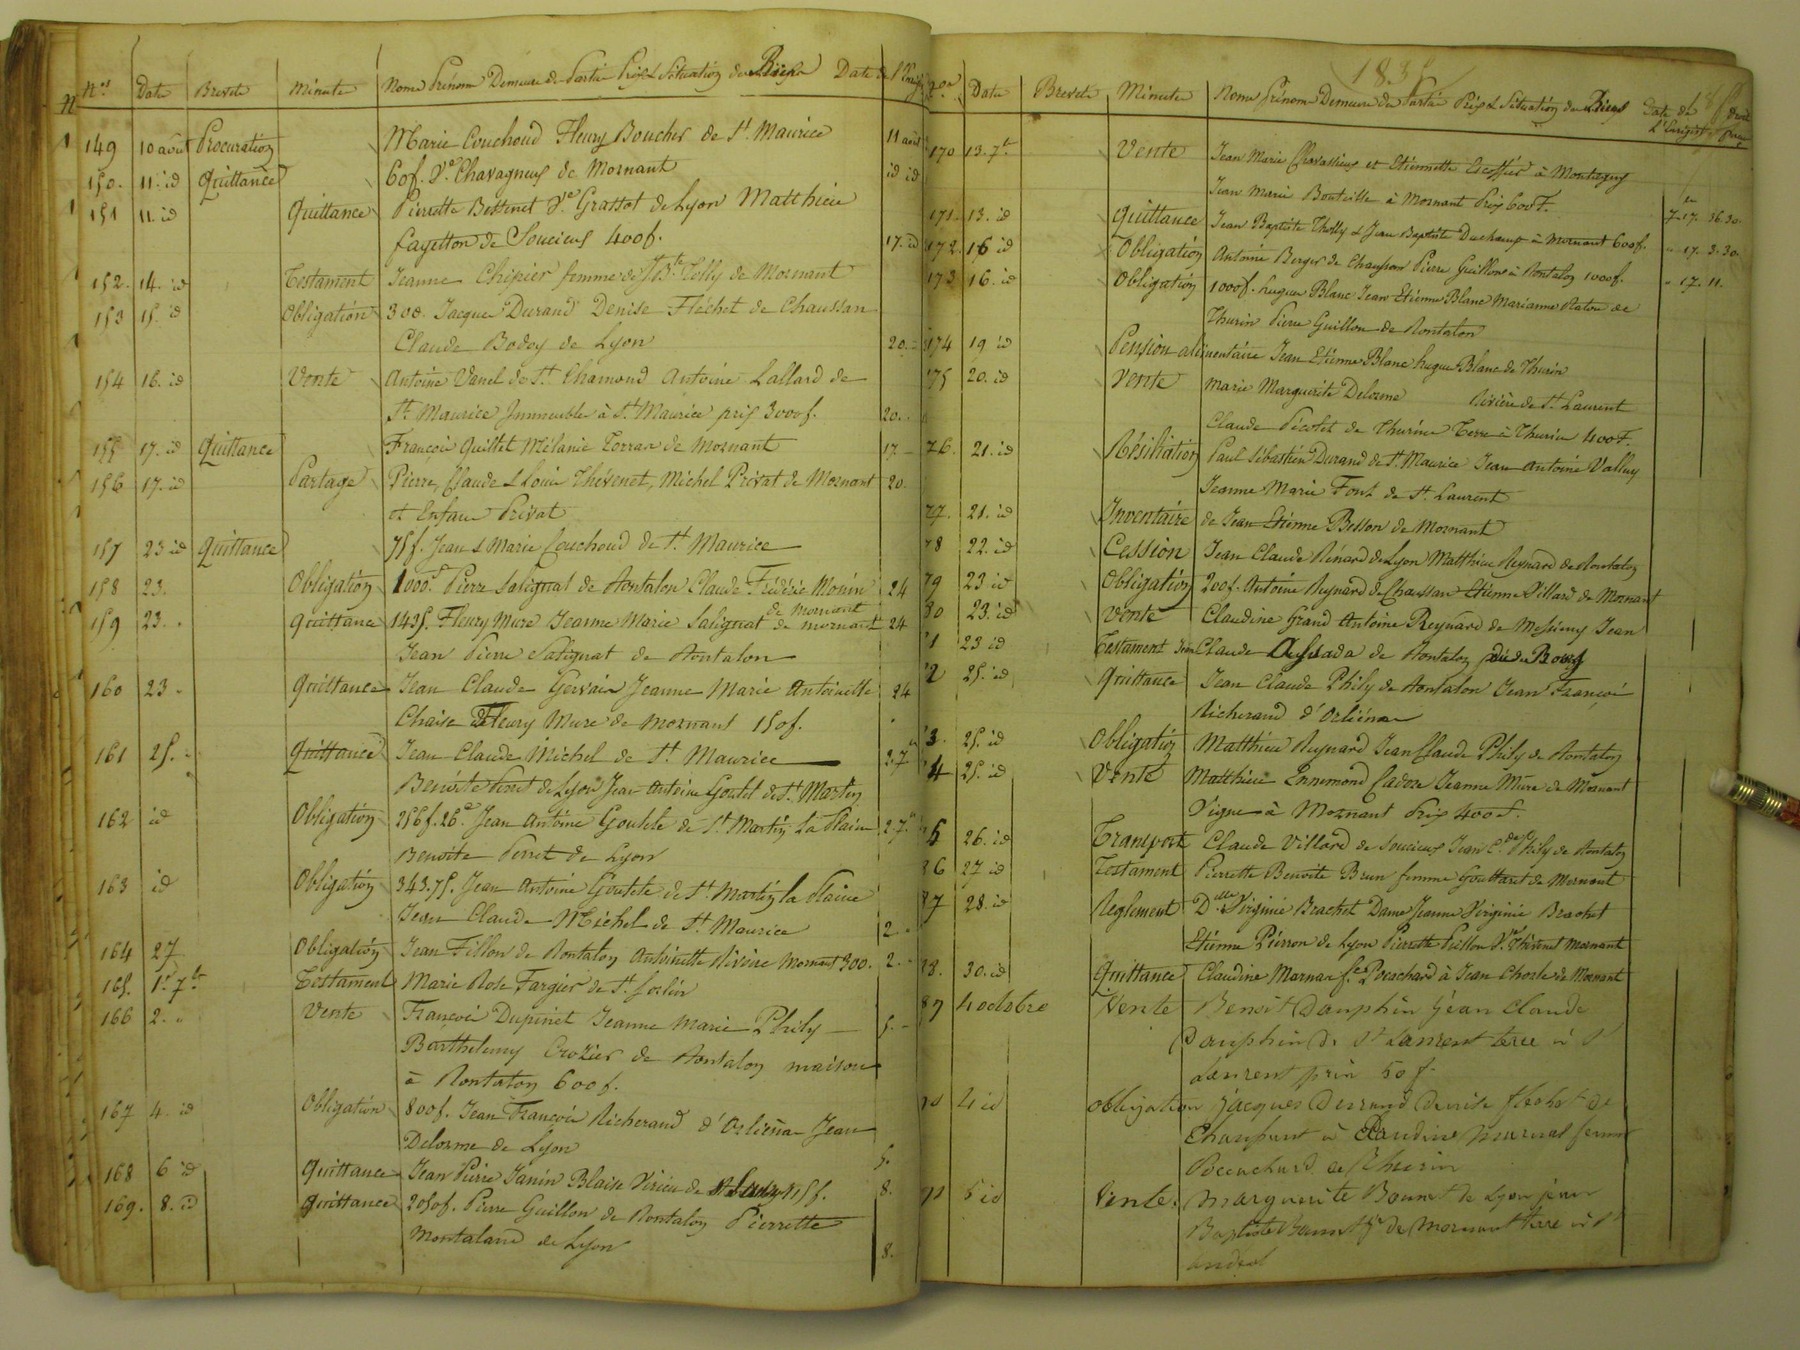 Nos Date Brevets Minutes Noms Prénoms Demeure de Partie Prix & Situation des Biens Date de l'Enregist
149 10 août Procuration Marie Couchoud Fleury Boucher de St Maurice 11 août
150. 11. id Quittance 60f. Ve Chavagneux de Mornant id id
151 11. id Quittance Pierrette Bessenet Ve Grassot de Lyon Matthieu
fayetton de Soucieux 400f. 17. id
152. 14. id Testament Jeanne Chipier femme de Jn Bte Tolly de Mornant
153 15. id Obligation 300. Jacques Durand Denise Fléchet de Chaussan
Claude Bodoy de Lyon 20.
154 16. id Vente Antoine Vanel de St Chamond Antoine Lallard de
St Maurice Immeuble à St Maurice prix 3000f. 20.
155 17. id Quittance François Quillet Mélanie Terras de Mornant 17
156 17. id Partage Pierre, Claude & Louis Thévenet, Michel Privat de Mornant 20.
et Enfans Privat
157 23 id Quittance 75f. Jean & Marie Couchoud de St Maurice
158 23. Obligation 1000f Pierre Salignat de Rontalon Claude Frédéric Monin 24
de mornant
159 23. Quittance 1435. Fleury Mure Jeanne Marie Salignat de mornant 24
Jean Pierre Salignat de Rontalon
160 23 Quittance Jean Claude Gervais Jeanne Marie Antoinette 24
Chaise & Fleury Mure de mornant 150f.
161 25. Quittance Jean Claude Michel de St Maurice 27
Benoite Perret de Lyon Jean Antoine Goutel de St Martin
162 id Obligation 256f. 26c Jean Antoine Goutete de St Martin la Plaine 27.
Benoite Perret de Lyon
163 id Obligation 343.75. Jean Antoine Goutete de St Martin la Plaine
Jean Claude Michel de St Maurice 2.
164 27 Obligation Jean Fillon de Rontalon Antoinette Rivoire Mornant 300. 2.
165. 1er 7bre Testament Marie Rose Fargier de St Sorlin
166 2. Vente François Dupinet Jeanne Marie Phily 5.
Barthelemy Crozier de Rontalon maison
à Rontalon 600f.
167 4. id Obligation 800f. Jean François Richerand d'Orliénas Jean
Delorme de Lyon 5.
168 6 id Quittance Jean Pierre Janin Blaise Virieu de 115f. 8.
169. 8. id Quittance 2050f. Pierre Guillon de Rontalon Pierrette
Montaland de Lyon 8.
Nos Date Brevets Minutes Noms Prénoms Demeure de Partie Prix & Situation des Biens Date de l'Enregist
170 13. 7bre Vente Jean Marie Chavassieux et Etiennette à Montagny
Jean Marie Bouteille à Mornant Prix 600f. 17. 36 30.
171 13. id Quittance Jean Baptiste Tholly & Jean Baptiste Duchamp à Mornant 600f. 17. 3.30.
172. 16 id Obligation Antoine Berger de Chaussan Pierre Guillon à Rontalon 1000f. 17. 11.
173 16. id Obligation 1000f. hugues Blanc Jean Etienne Blanc Marianne Raton de
Thurin Pierre Guillon de Rontalon
174 19 id Pension alimentaire Jean Etienne Blanc hugues Blanc de Thurin
75 20. id Vente marie Marguerite Delorme Rivière de St Laurent
Claude Picolet de Thurin Terre à Thurin 400f.
76. 21. id Résiliation Paul Sébastien Durand de St Maurice Jean Antoine Valluy
Jeanne Marie Font de St Laurent
77. 21. id Inventaire de Jean Etienne Besson de Mornant
78 22. id Cession Jean Claude Rénard de Lyon Matthieu Reynard de Rontalon
79 23 id Obligation 200f. Antoine Reynard de Chaussan Etienne Villard de Mornant
80 23. id Vente Claudine Grand Antoine Reynard de Messimy Jean
1 23 id Testament Jean Claude de Rontalon
2 25. id Quittance Jean Claude Phily de Rontalon Jean François
Richerand d'Orliénas
3. 25. id Obligation Matthieu Reynard Jean Claude Phily de Rontalon
4 25. id Vente Matthieu Ennemond Cadore Jeanne Mure de Mornant
Vigne à Mornant Prix 400f.
5 26. id Transport Claude Villard de Soucieux Jean Cde Phily de Rontalon
86 27 id Testament Pierrette Benoite Brun femme Gouttaret de Mornant
87 28. id Reglement Dlle Virginie Brachet Dame Jeanne Virginie Brachet
Etienne Piérron de Lyon Pierrette Pillon Ve Thivent Mornant
88. 30. id Quittance Claudine Marnas fe Poeuchard à Jean Chosle de Mornant
89 4 octobre Vente Benoit Dauphin jean Claude
Dauphin de St Laurent terre à St
Laurent prix 50 f.
90 4 id obligation jacques Durand Denise flechet de
Chaussant à Claudine Marnas femme
Poeuchard de thurin
91 5 id Vente. Marguerite Bonnet de Lyon jean
Baptiste Bonnet de Mornant terre à St
andeol